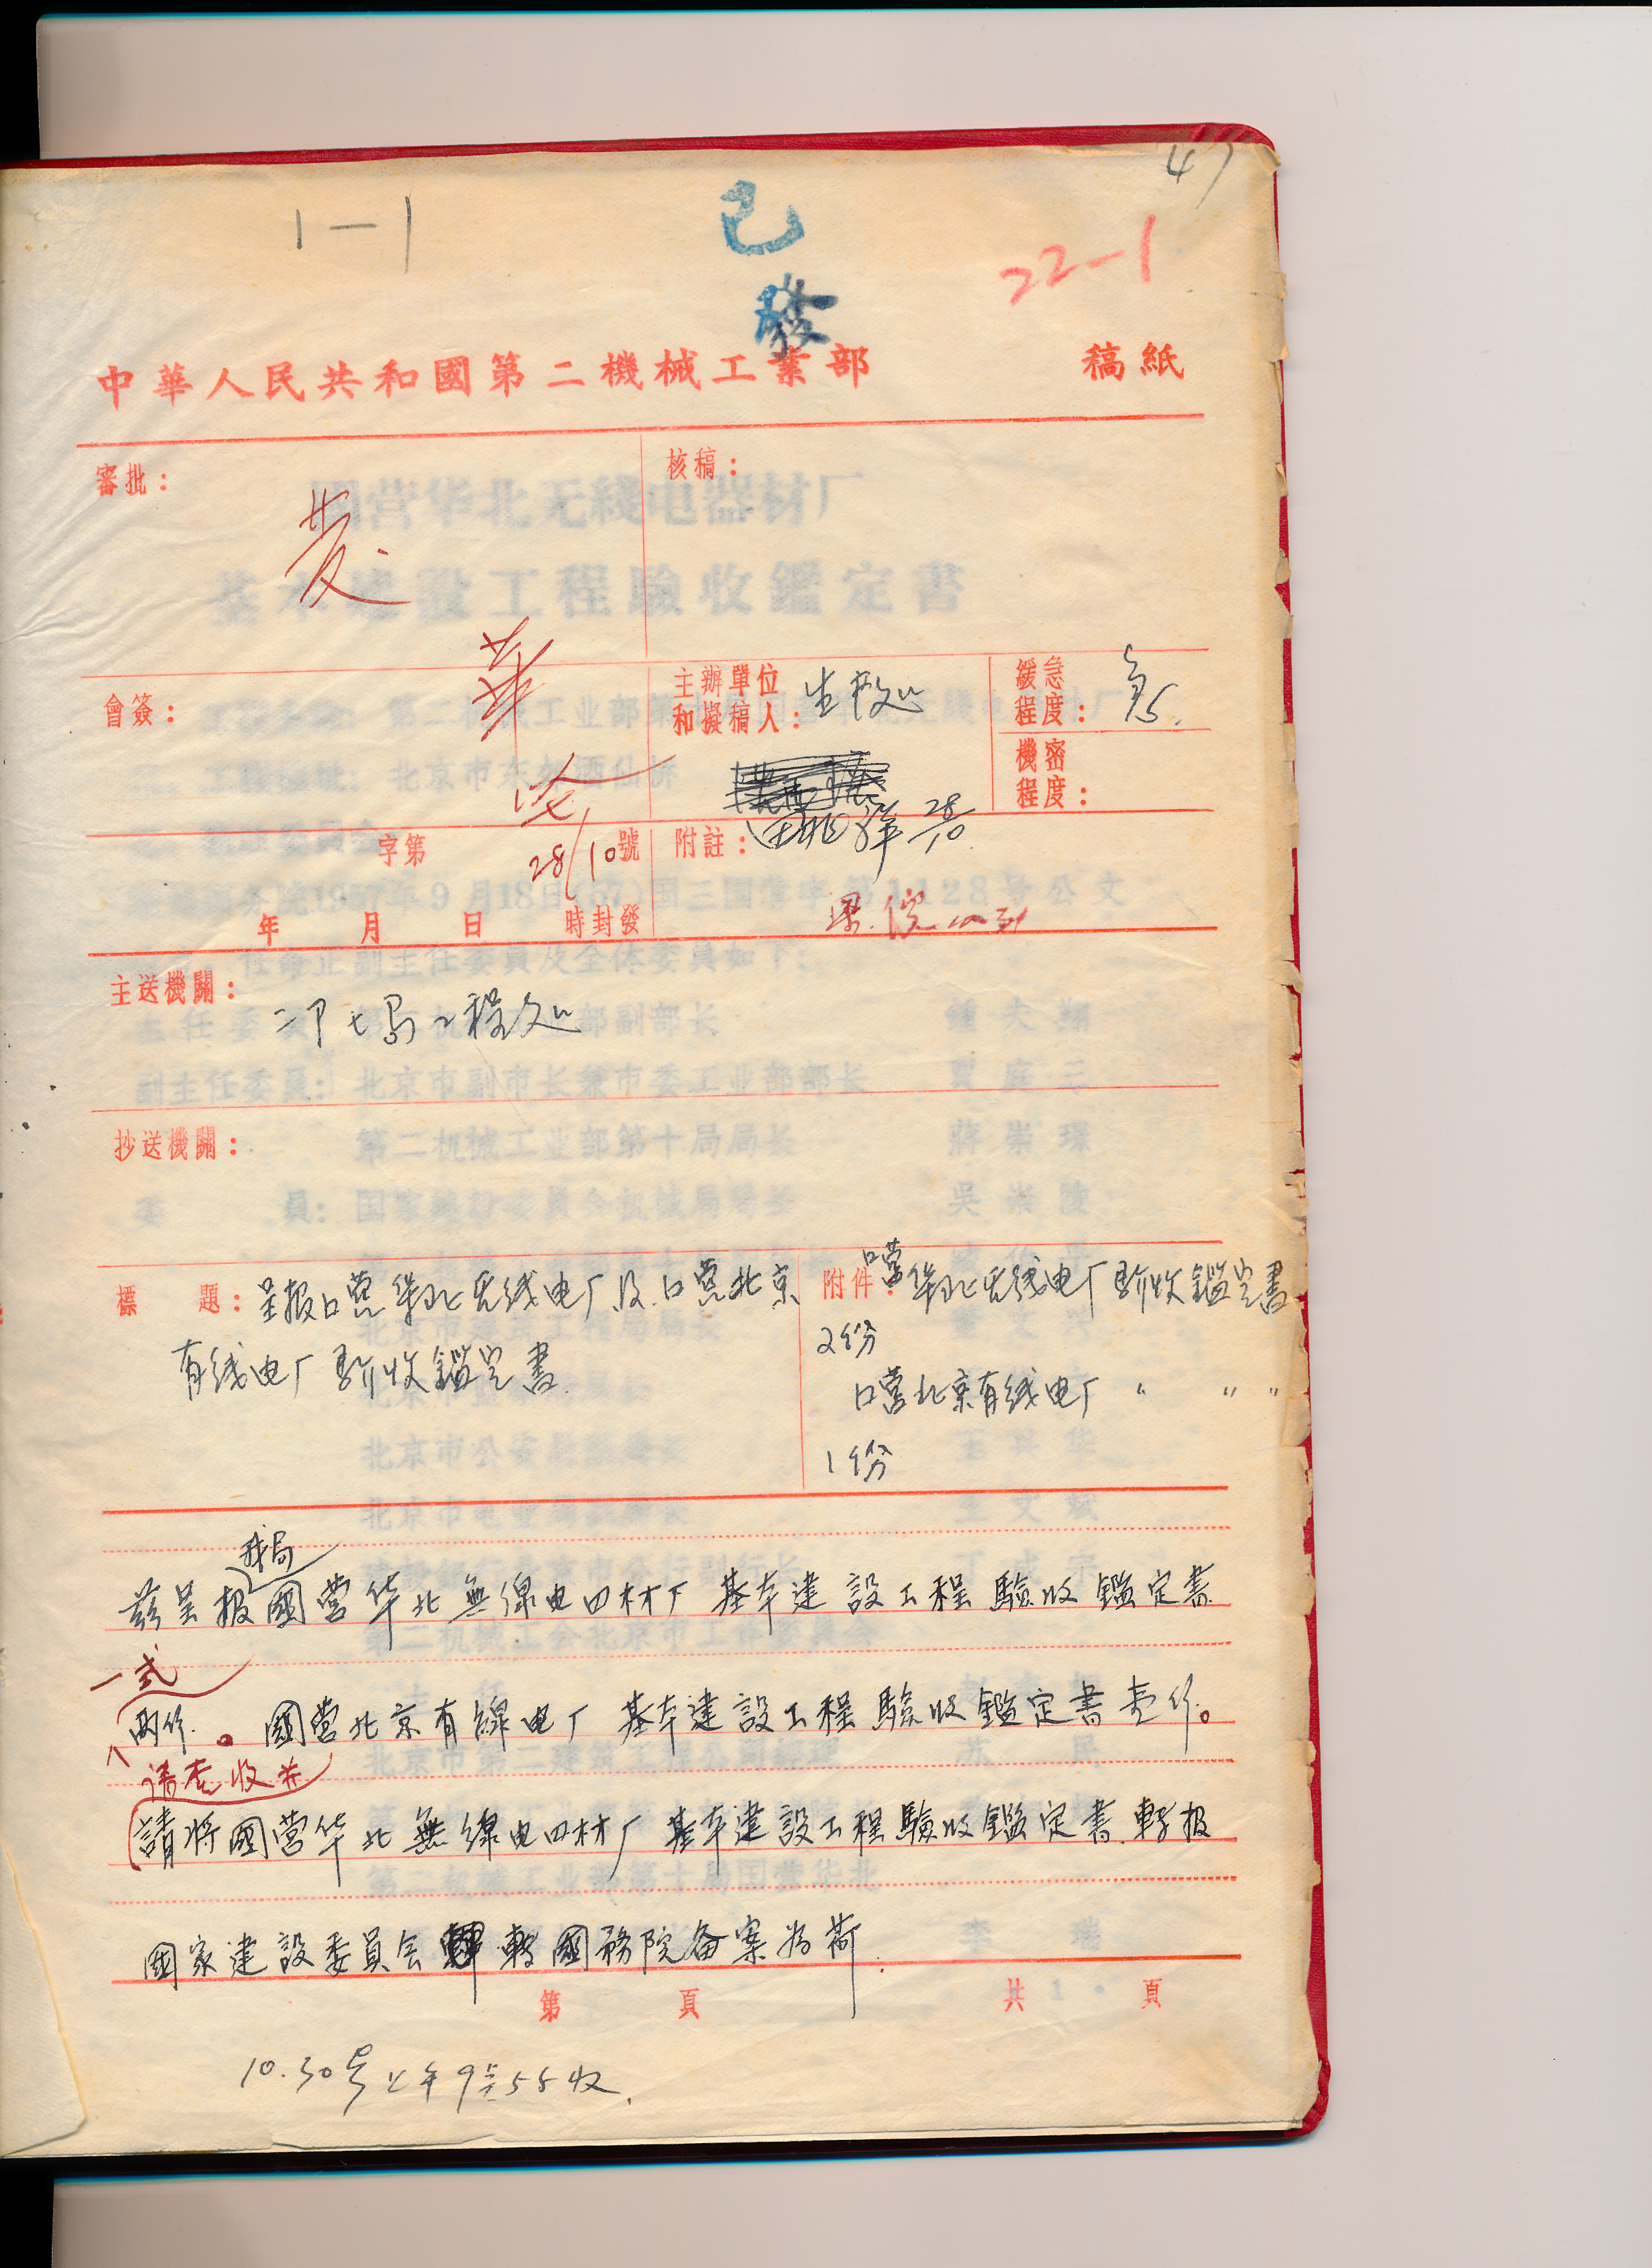 47
1—1
已
發
22-1
中華人民共和國第二機械工業部 稿紙
審批：
发
華
28/10
核稿：
會簽：
主辦單位
和擬稿人：
生技处
28/10
緩急
程度：
急
機密
程度：
字第 號
年 月 日 時封發
附註：
主送機關：
二部七局工程处
抄送機關：
標 題：呈报囗营华北无线电厂及囗营北京
有线电厂验收鑑定書
附件：囗营华北无线电厂验收鑑定書
2份
囗营北京有线电厂 〃 〃 〃
1份
我局
茲呈报國营华北無線电四材厂基本建設工程驗收鑑定書
一式
两份。國営北京有線电厂基本建設工程驗收鑑定書壱份。
请查收并
請将國营华北無線电四材厂基本建設工程驗收鑑定書轉报
國家建設委員会轉國務院备案为荷.
第 頁 共 頁
10.30号上午9点55收.